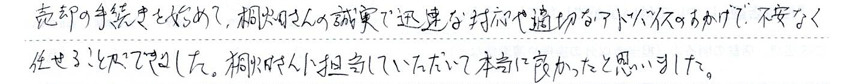 売却の手続きを始めて、桐畑さんの誠実で迅速な対応や適切なアドバイスのおかげで、不安なく
任せることができました。桐畑さんに担当していただいて本当に良かったと思いました。